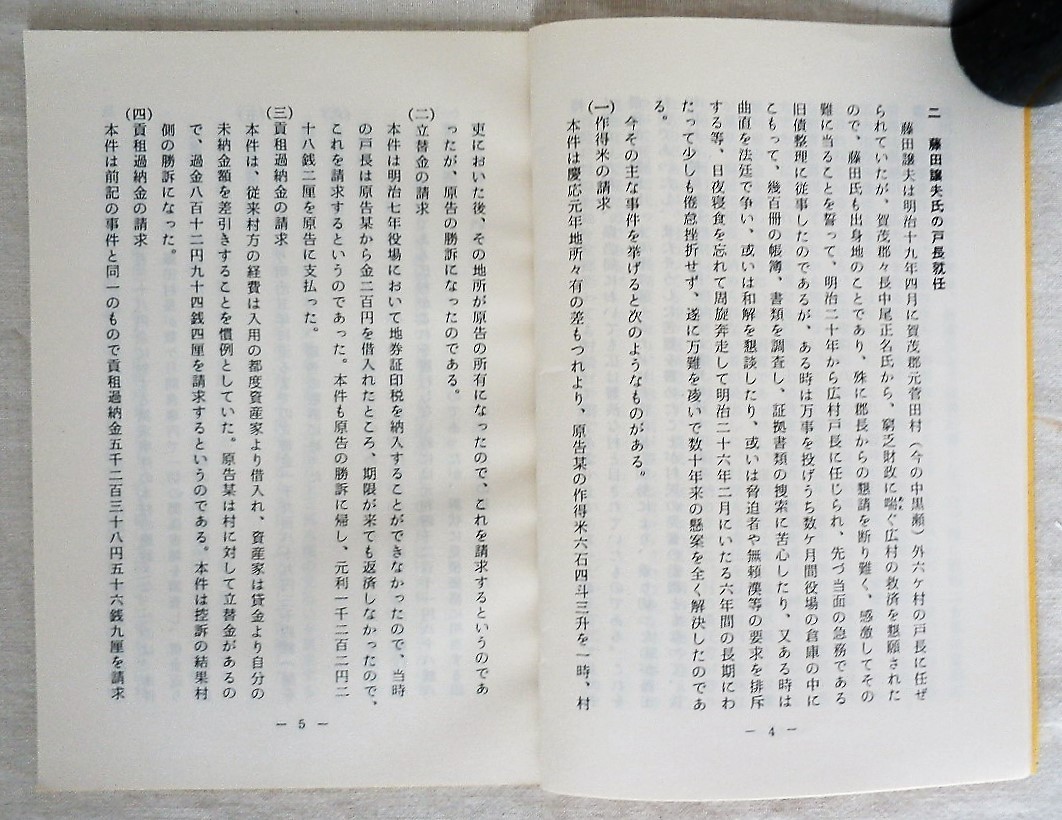 二　藤田譲夫氏の戸長就任
藤田譲夫は明治十九年四月に賀茂郡元菅田村（今の中黒瀬）外六ケ村の戸長に任ぜ
られていたが、賀茂郡々長中尾正名氏から、窮乏財政に喘ぐ広村の救済を懇願された
ので、藤田氏も出身地のことであり、殊に郡長からの懇請を断り難く、感激してその
難に当ることを誓って、明治二十年から広村戸長に任じられ、先づ当面の急務である
旧債整理に従事したのであるが、ある時は万事を投げうち数ケ月間役場の倉庫の中に
こもって、幾百冊の帳簿、書類を調査し、証拠書類の捜索に苦心したり、又ある時は
曲直を法廷で争い、或いは和解を懇談したり、或いは脅迫者や無頼漢等の要求を排斥
する等、日夜寝食を忘れて周旋奔走して明治二十六年二月にいたる六年間の長期にわ
たって少しも倦怠挫折せず、遂に万難を凌いで数十年来の懸案を全く解決したのであ
る。
今その主な事件を挙げると次のようなものがある。
(一)作得米の請求
本件は慶応元年地所々有の差もつれより、原告某の作得米六石四斗三升を一時、村
— 4 —
吏においた後、その地所が原告の所有になったので、これを請求するというのであ
ったが、原告の勝訴になったのである。
(二)立替金の請求
本件は明治七年役場において地券証印税を納入することができなかったので、当時
の戸長は原告某から金二百円を借入れたところ、期限が来ても返済しなかったので、
これを請求するというのであった。本件も原告の勝訴に帰し、元利一千二百二円二
十八銭二厘を原告に支払った。
(三)貢租過納金の請求
本件は、従来村方の経費は入用の都度資産家より借入れ、資産家は貸金より自分の
未納金額を差引きすることを慣例としていた。原告某は村に対して立替金があるの
で、過金八百十二円九十四銭四厘を請求するというのである。本件は控訴の結果村
側の勝訴になった。
(四)貢租過納金の請求
本件は前記の事件と同一のもので貢租過納金五千二百三十八円五十六銭九厘を請求
— 5 —